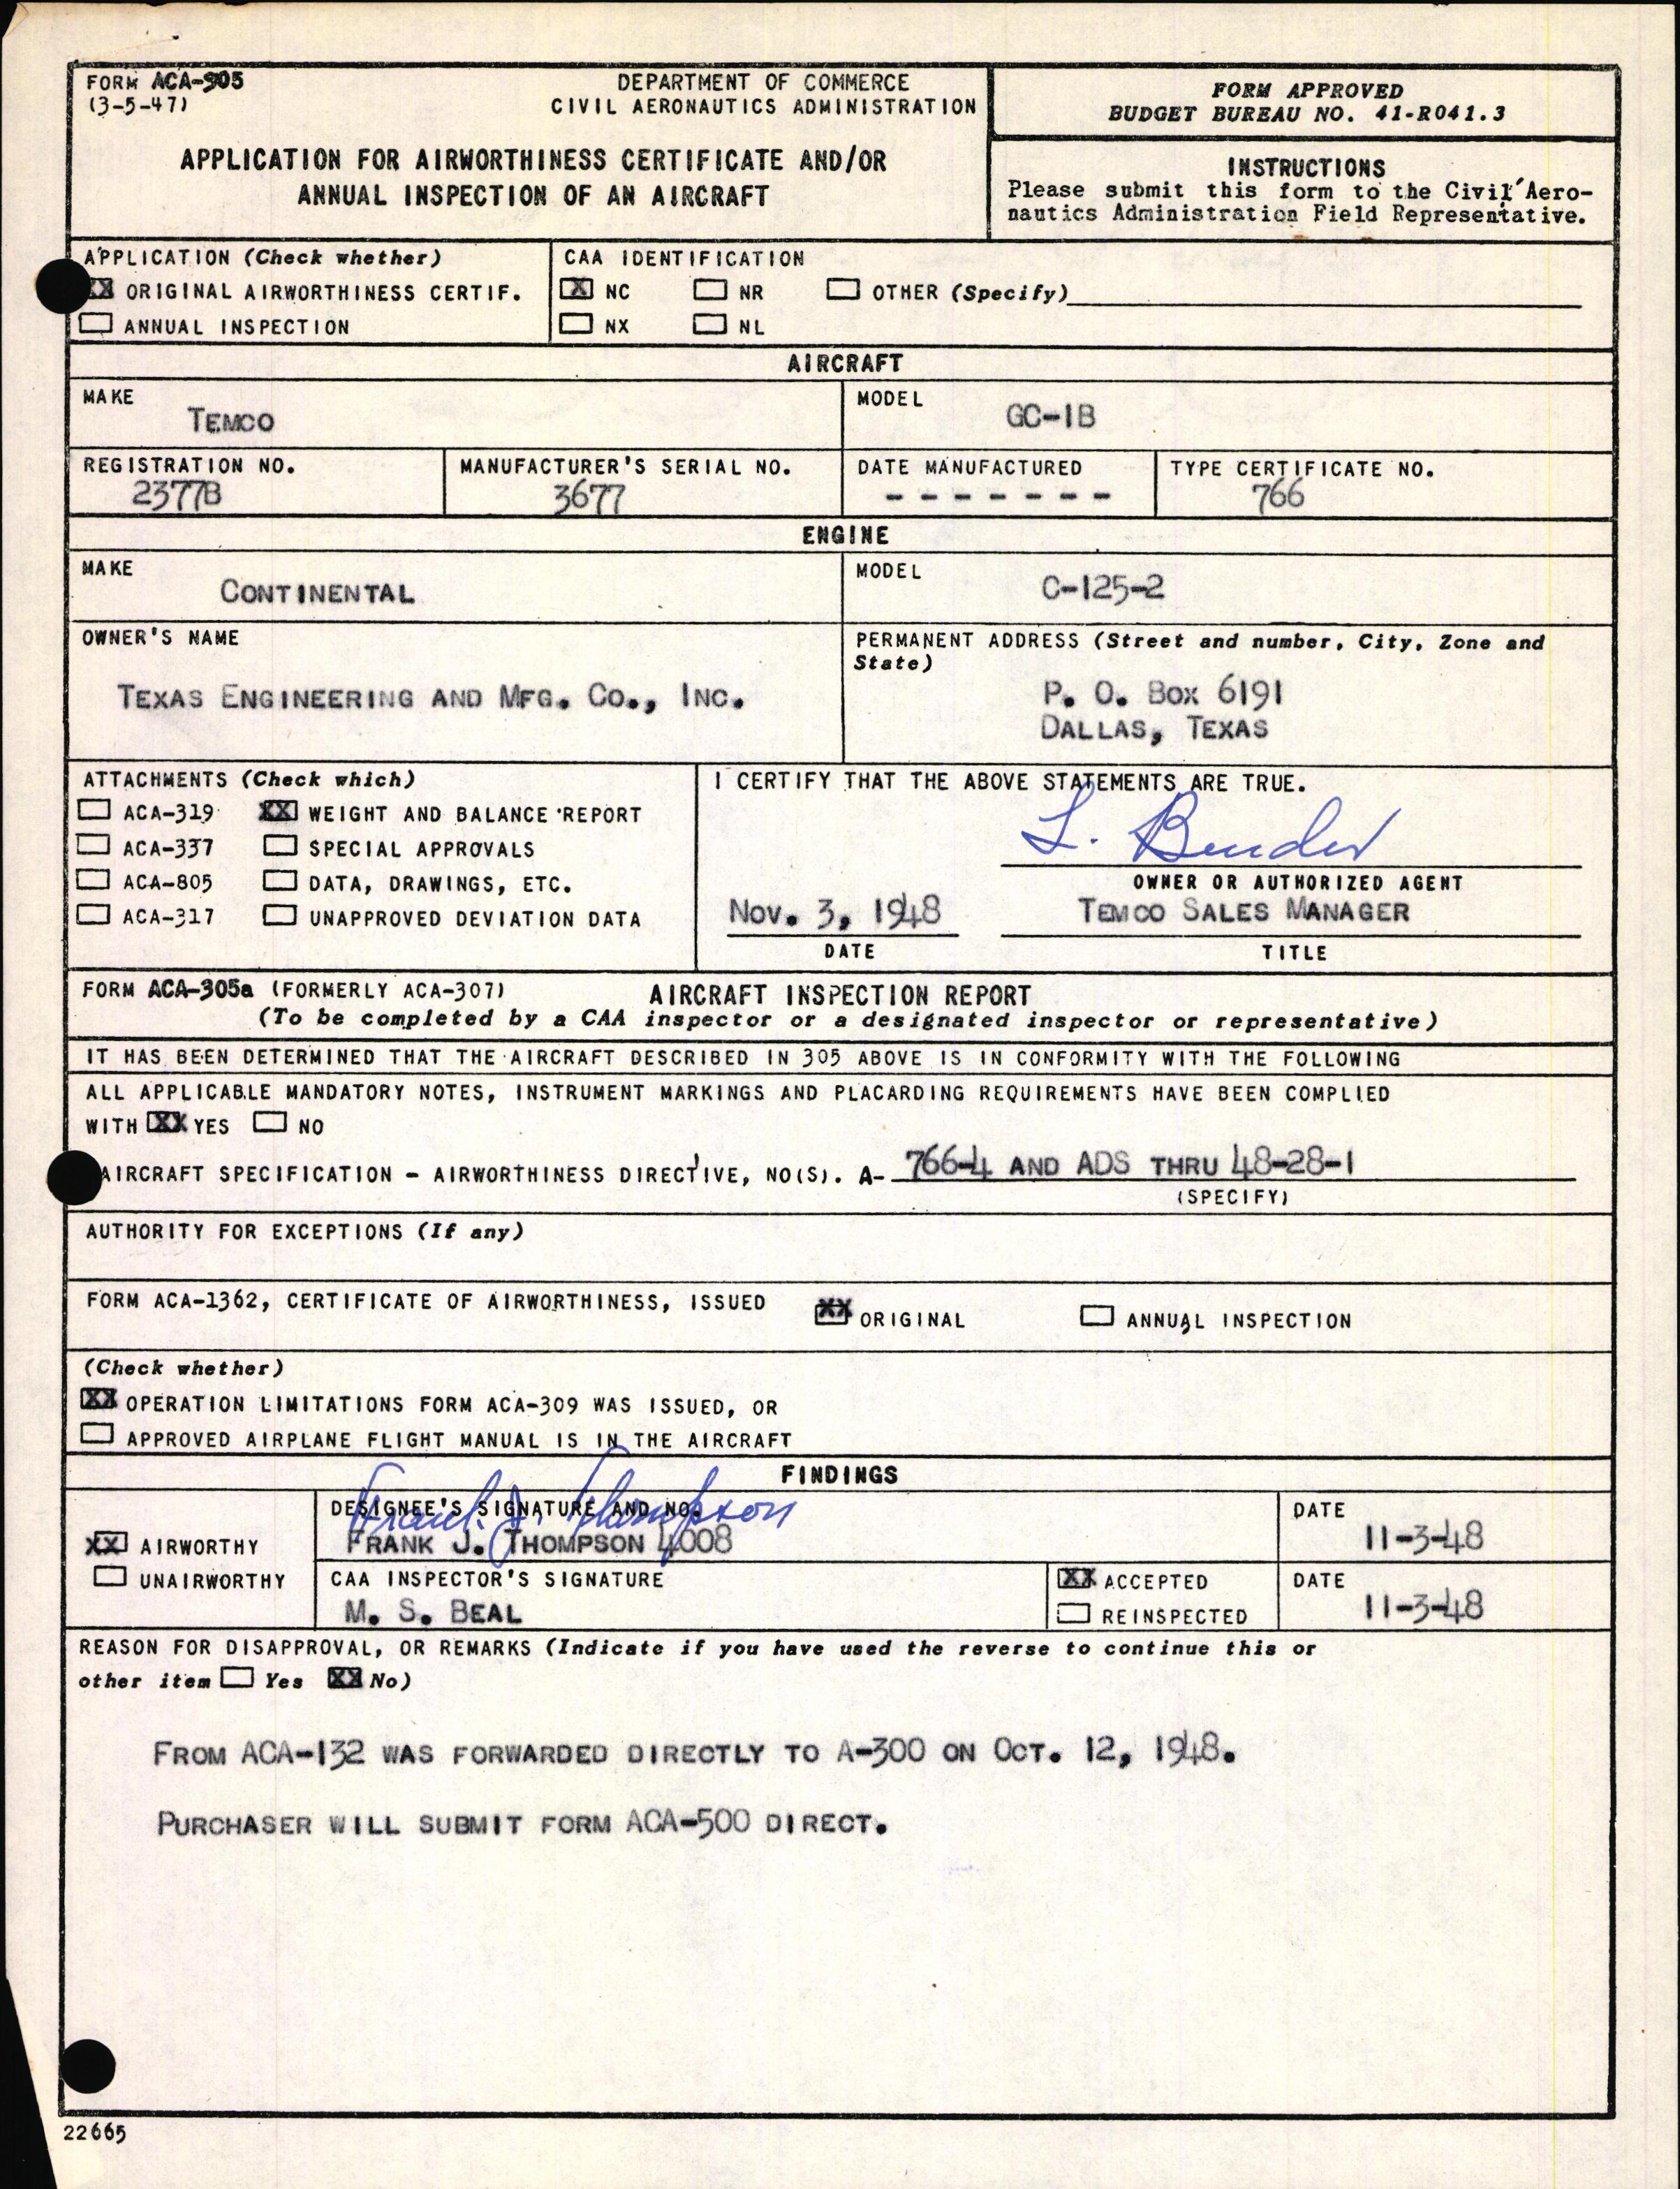 FORM ACA-305
(3-5-47)
DEPARTMENT OF COMMERCE
CIVIL AERONAUTICS ADMINISTRATION
APPLICATION FOR AIRWORTHINESS CERTIFICATE AND/OR
ANNUAL INSPECTION OF AN AIRCRAFT
FORM APPROVED
BUDGET BUREAU NO. 41-R041.3
INSTRUCTIONS
Please submit this form to the Civil Aero-
nautics Administration Field Representative.
APPLICATION (Check whether)
XX ORIGINAL AIRWORTHINESS CERTIF.
ANNUAL INSPECTION
CAA IDENTIFICATION
X NC NR OTHER (Specify)
NX NL
AIRCRAFT
MAKE
TEMCO
MODEL
GC-1B
REGISTRATION NO.
2377B
MANUFACTURER'S SERIAL NO.
3677
DATE MANUFACTURED
- - - - - - -
TYPE CERTIFICATE NO.
766
ENGINE
MAKE
CONTINENTAL
MODEL
C-125-2
OWNER'S NAME
TEXAS ENGINEERING AND MFG. CO., INC.
PERMANENT ADDRESS (Street and number, City, Zone and
State)
P. O. BOX 6191
DALLAS, TEXAS
ATTACHMENTS (Check which)
ACA-319 XX WEIGHT AND BALANCE REPORT
ACA-337 SPECIAL APPROVALS
ACA-805 DATA, DRAWINGS, ETC.
ACA-317 UNAPPROVED DEVIATION DATA
I CERTIFY THAT THE ABOVE STATEMENTS ARE TRUE.
L. Bender
OWNER OR AUTHORIZED AGENT
NOV. 3, 1948
TEMCO SALES MANAGER
DATE
TITLE
FORM ACA-305a (FORMERLY ACA-307) AIRCRAFT INSPECTION REPORT
(To be completed by a CAA inspector or a designated inspector or representative)
IT HAS BEEN DETERMINED THAT THE AIRCRAFT DESCRIBED IN 305 ABOVE IS IN CONFORMITY WITH THE FOLLOWING
ALL APPLICABLE MANDATORY NOTES, INSTRUMENT MARKINGS AND PLACARDING REQUIREMENTS HAVE BEEN COMPLIED
WITH XX YES NO
AIRCRAFT SPECIFICATION - AIRWORTHINESS DIRECTIVE, NO(S). A- 766-4 AND ADS THRU 48-28-1
(SPECIFY)
AUTHORITY FOR EXCEPTIONS (If any)
FORM ACA-1362, CERTIFICATE OF AIRWORTHINESS, ISSUED XX ORIGINAL ANNUAL INSPECTION
(Check whether)
XX OPERATION LIMITATIONS FORM ACA-309 WAS ISSUED, OR
APPROVED AIRPLANE FLIGHT MANUAL IS IN THE AIRCRAFT
FINDINGS
XX AIRWORTHY
UNAIRWORTHY
DESIGNEE'S SIGNATURE AND NO.
Frank J. Thompson
FRANK J. THOMPSON 4008
DATE
11-3-48
CAA INSPECTOR'S SIGNATURE
M. S. BEAL
XX ACCEPTED
REINSPECTED
DATE
11-3-48
REASON FOR DISAPPROVAL, OR REMARKS (Indicate if you have used the reverse to continue this or
other item Yes XX No)
FROM ACA-132 WAS FORWARDED DIRECTLY TO A-300 ON OCT. 12, 1948.
PURCHASER WILL SUBMIT FORM ACA-500 DIRECT.
22665